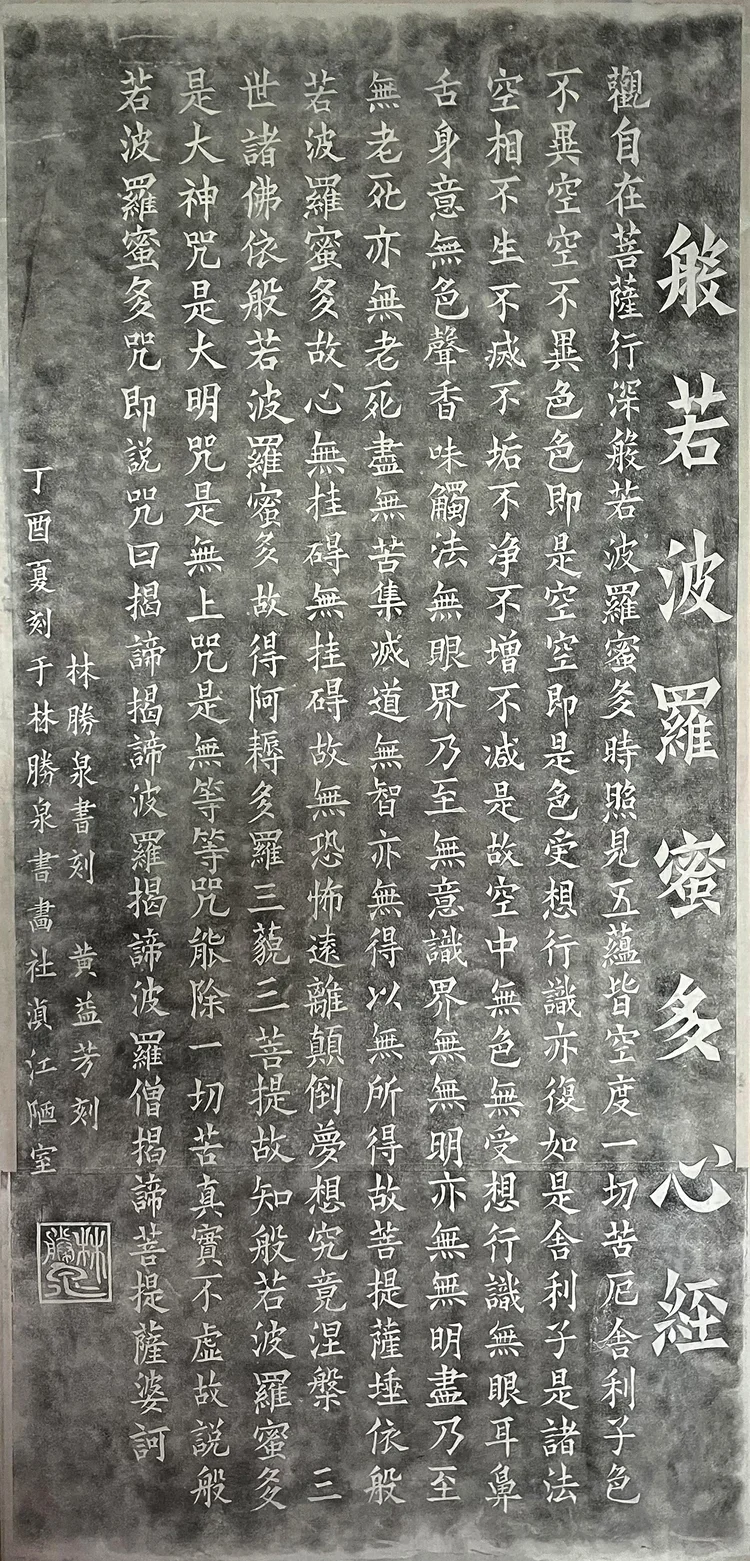 般若波羅蜜多心經
觀自在菩薩行深般若波羅蜜多時照見五蘊皆空度一切苦厄舍利子色
不異空空不異色色即是空空即是色受想行識亦復如是舍利子是諸法
空相不生不滅不垢不净不增不減是故空中無色無受想行識無眼耳鼻
舌身意無色聲香味觸法無眼界乃至無意識界無無明亦無無明盡乃至
無老死亦無老死盡無苦集滅道無智亦無得以無所得故菩提薩埵依般
若波羅蜜多故心無挂碍無挂碍故無恐怖遠離顛倒夢想究竟涅槃三
世諸佛依般若波羅蜜多故得阿耨多羅三藐三菩提故知般若波羅蜜多
是大神咒是大明咒是無上咒是無等等咒能除一切苦真實不虛故説般
若波羅蜜多咒即説咒曰揭諦揭諦波羅揭諦波羅僧揭諦菩提薩婆訶
林勝泉書刻 黃益芳刻
丁酉夏刻于林勝泉書畫社滇江陋室
林勝泉